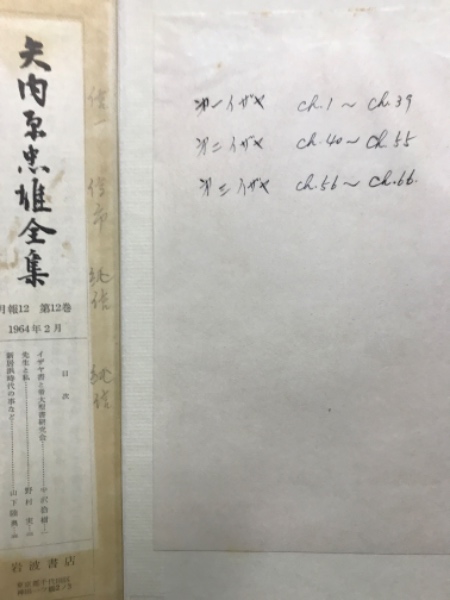 矢内原忠雄全集
月報12 第12巻
1964年2月
目次
イザヤ書と帝大聖書研究会
先生と私 野村実
新居浜時代の事など 山下陸奥
岩波書店
第一イザヤ ch.1〜ch.39
第二イザヤ ch.40〜ch.55
第三イザヤ ch.56〜ch.66.